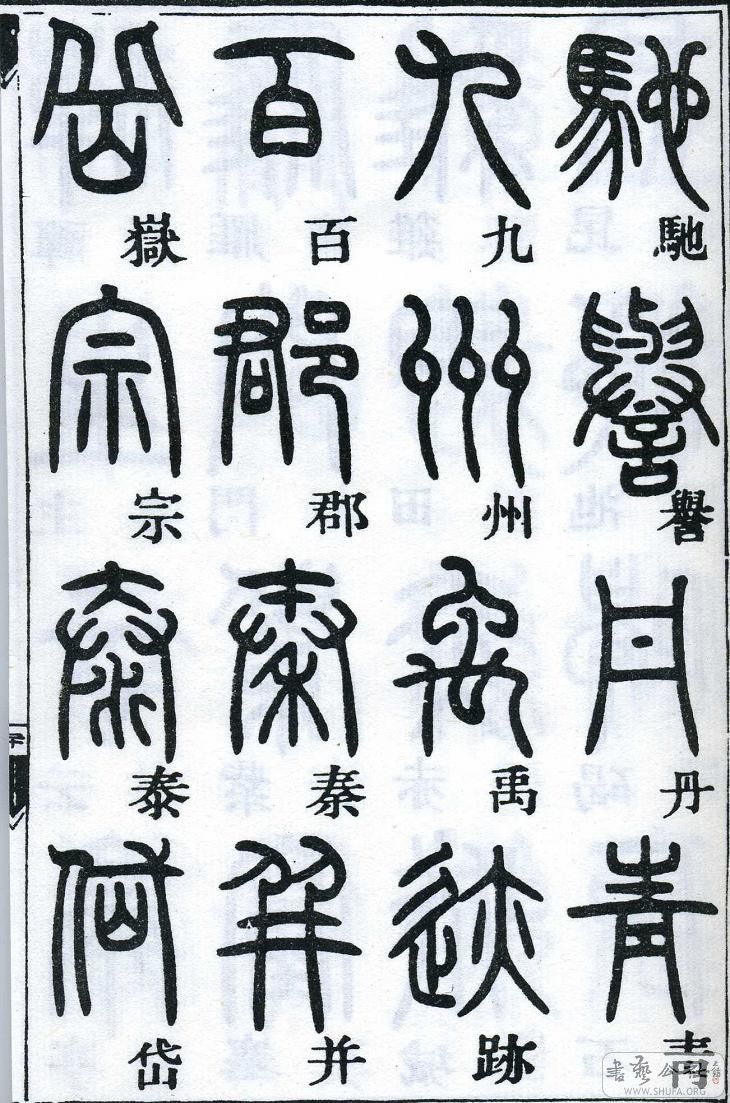 馳譽丹青
九州禹跡
百郡秦并
嶽宗泰岱
書藝公社
WWW.SHUFA.ORG